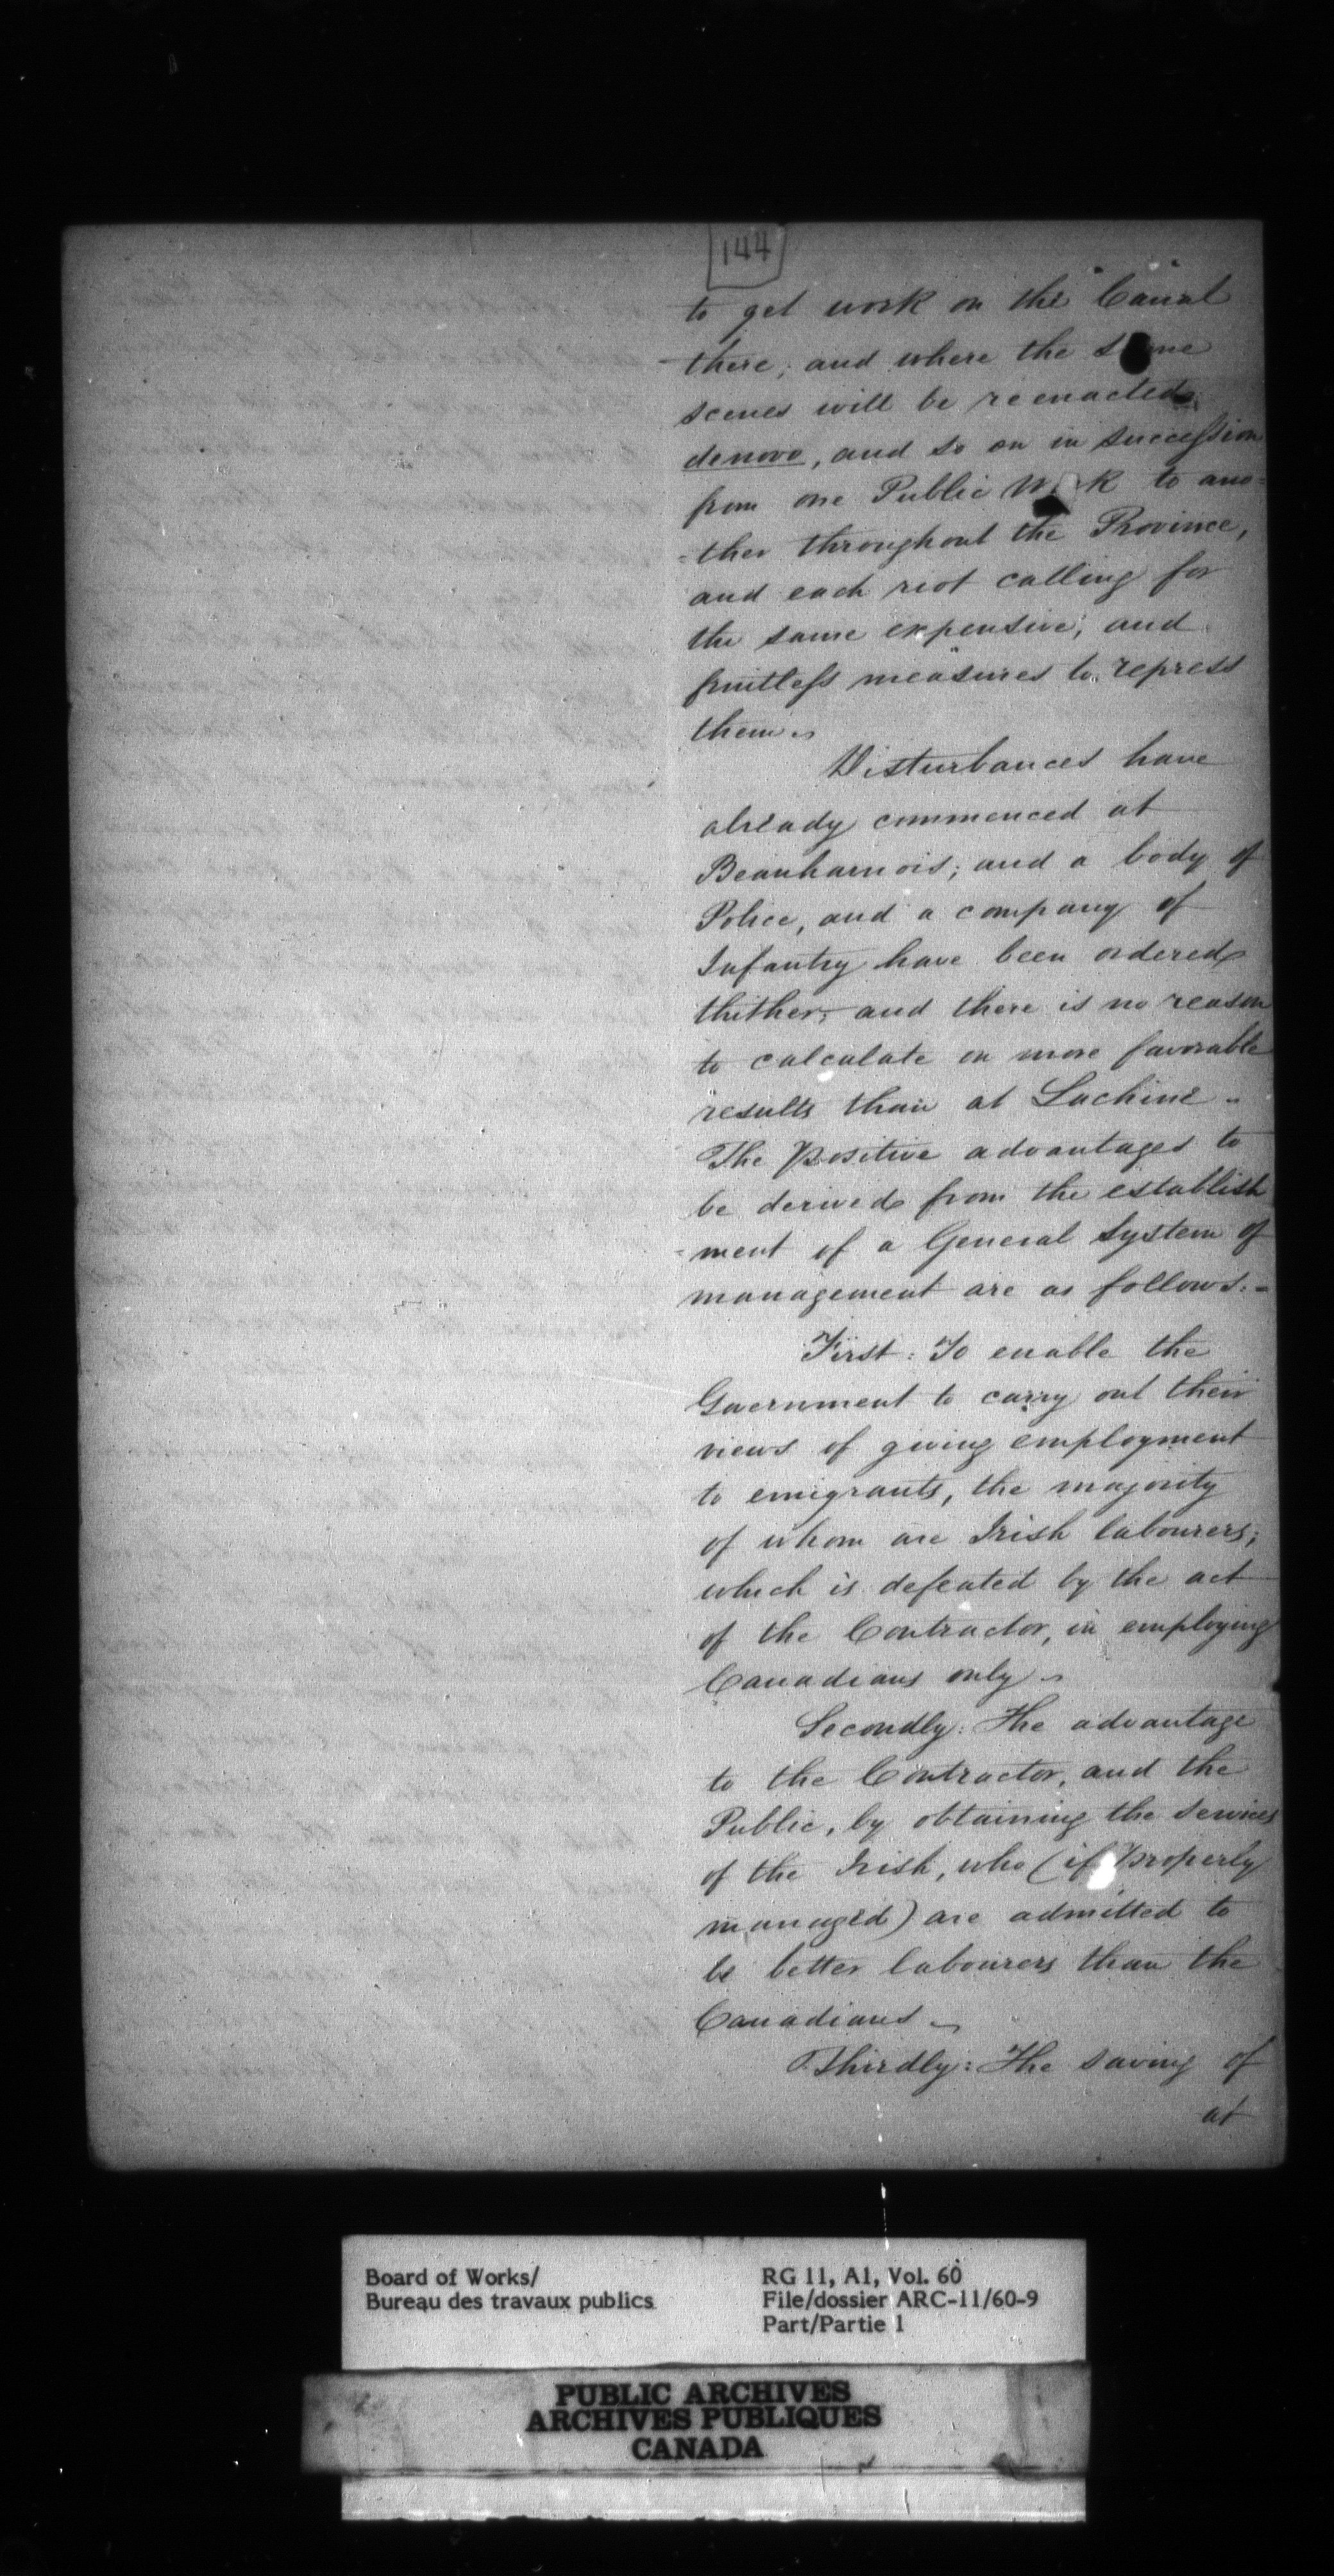 144
to get work on the Canal
there; and where the same
scenes will be reenacted
denovo, and so on in succession
from one Public Work to ano-
-ther throughout the Province,
and each riot calling for
the same expensive, and
fruitless measures to repress
them.
Disturbances have
already commenced at
Beauharnois; and a body of
Police, and a company of
Infantry have been ordered
thither; and there is no reason
to calculate on more favorable
results than at Lachine.
The positive advantages to
be derived from the establish
-ment of a General System of
management are as follows:-
First: To enable the
Government to carry out their
views of giving employment
to emigrants, the majority
of whom are Irish labourers;
which is defeated by the act
of the Contractor, in employing
Canadians only.
Secondly: The advantage
to the Contractor, and the
Public, by obtaining the services
of the Irish, who (if properly
managed) are admitted to
be better labourers than the
Canadians.
Thirdly: The saving of
at
Board of Works/
Bureau des travaux publics
RG 11, A1, Vol. 60
File/dossier ARC-11/60-9
Part/Partie 1
PUBLIC ARCHIVES
ARCHIVES PUBLIQUES
CANADA